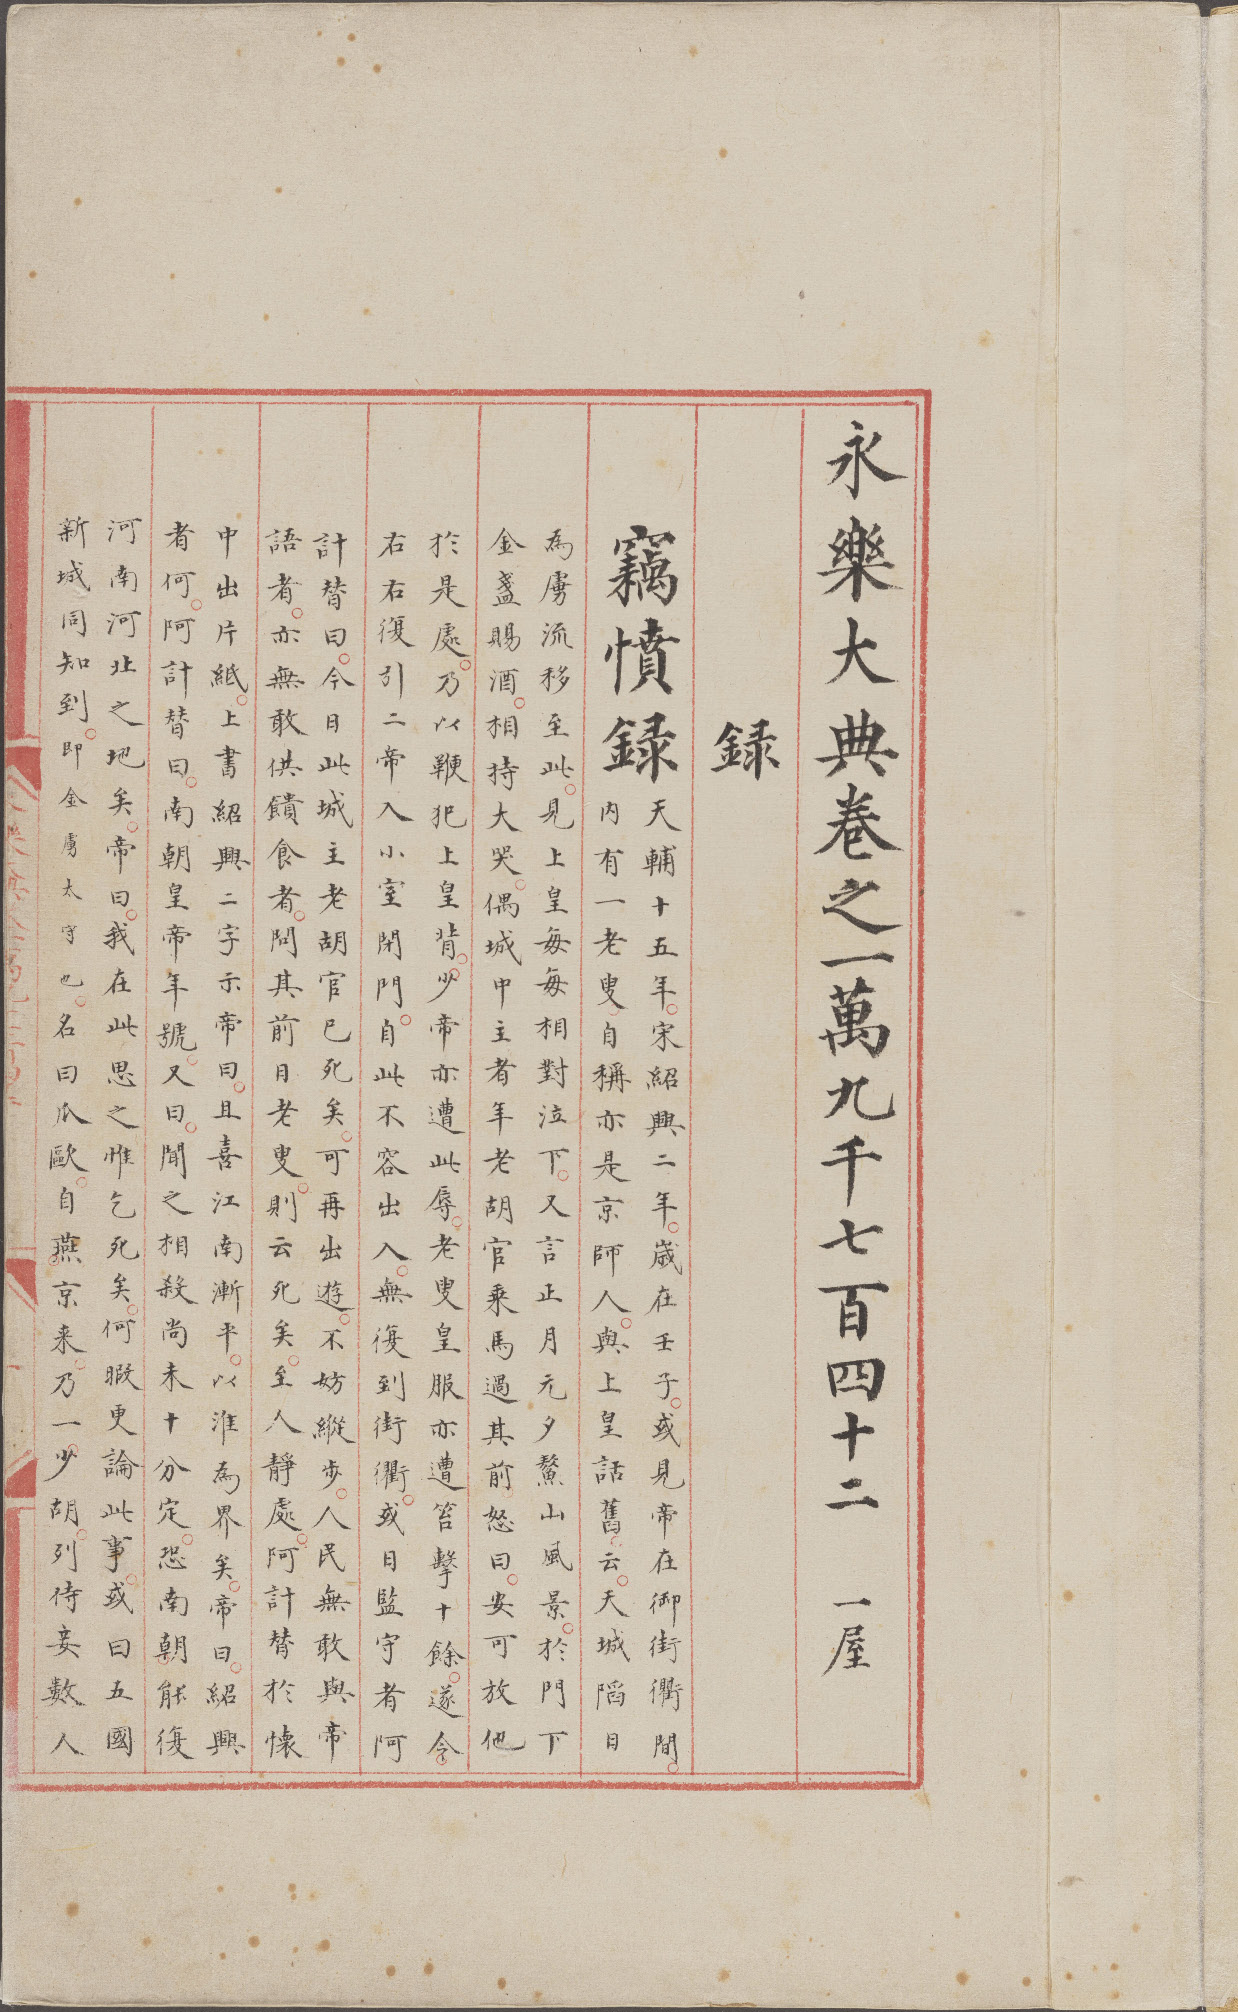 永樂大典卷之一萬九千七百四十二　一屋
録
竊憤録
天輔十五年宋紹興二年歳在壬子或見帝在御街衢間
内有一老叟自稱亦是京師人與上皇話舊云天城陷日
為虜流移至此見上皇每每相對泣下又言正月元夕鰲山風景於門下
金盞賜酒相持大哭偶城中主者年老胡官乗馬過其前怒曰安可放他
於是處乃以鞭犯上皇背少帝亦遭此辱老叟皇服亦遭笞擊十餘遂令
右右復引二帝入小室閉門自此不容出入無復到街衢或日監守者阿
計替曰今日此城主老胡官已死矣可再出遊不妨縱步人民無敢與帝
語者亦無敢供饋食者問其前日老叟則云死矣至人静處阿計替於懐
中出片紙上書紹興二字示帝曰且喜江南漸平以淮為界矣帝曰紹興
者何阿計替曰南朝皇帝年號又曰聞之相殺尚未十分定恐南朝能復
河南河北之地矣帝曰我在此思之惟乞死矣何暇更論此事或曰五國
新城同知到即金虜太守也名曰瓜歐自燕京来乃一少胡列侍妾數人